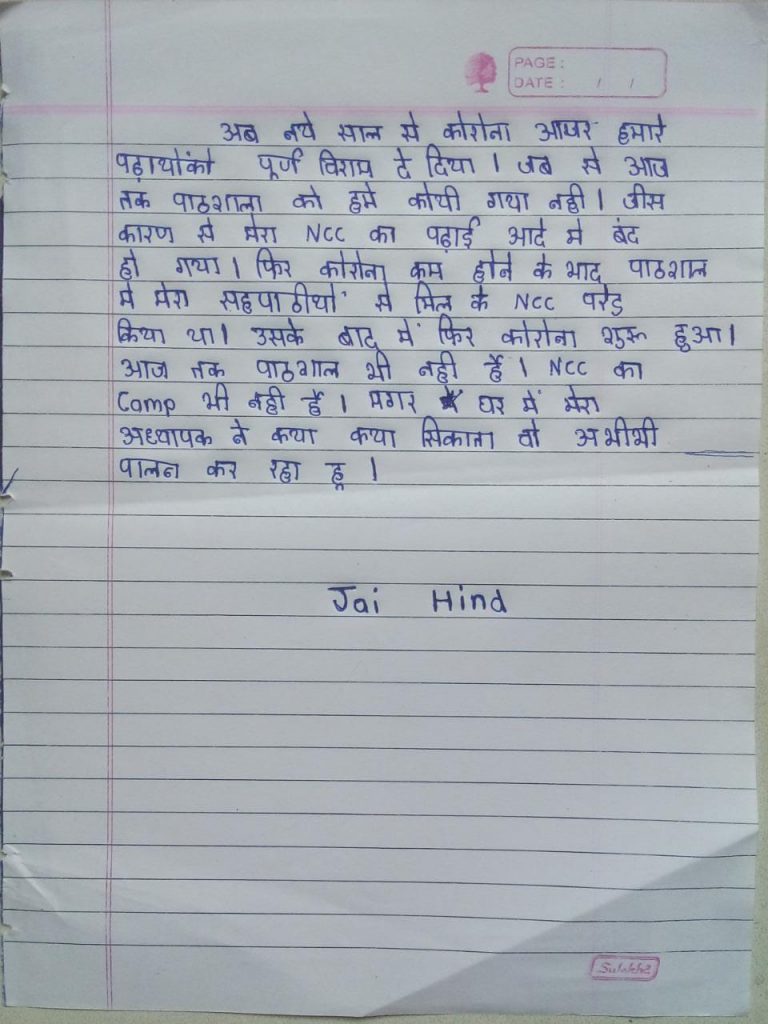 PAGE :
DATE : / /
अब नये साल से कोरोना आयर हमारे
पढ़ायोंको पूर्ण विराम दे दिया । जब से आज
तक पाठशाला को हमे कोयी गया नही । जीस
कारण से मेरा NCC का पढ़ाई आदे मे बंद
हो गया । फिर कोरोना कम होने के भाद पाठशाल
मे मेरा सहपाठीयों से मिल के NCC परेड
किया था। उसके बाद में फिर कोरोना शुरू हुआ।
आज तक पाठशाल भी नही हैं । NCC का
Camp भी नही हैं । मगर घर में मेरा
अध्यापक ने कया कया सिकाता वो अभीभी
पालन कर रहा हू ।
Jai Hind
Sulekha